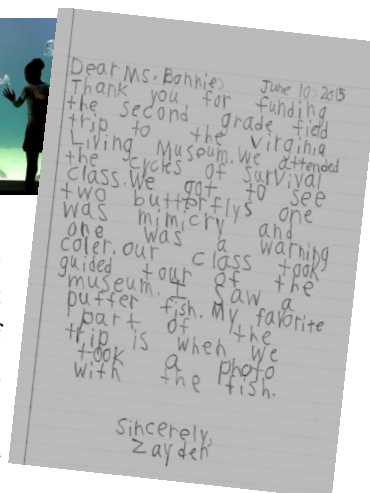 Dear Ms. Bonnie,
June 10, 2015
Thank you for funding
the second grade field
trip to the Virginia
Living Museum. We attended
the cycles of survival
class. We got to see
two butterflys one
was mimicry and
one was a warning
coler. our class took
guided tour of the
museum. I saw a
puffer fish. My favorite
part of the
trip is when we
took a photo
with the fish.
Sincerely,
Zayden